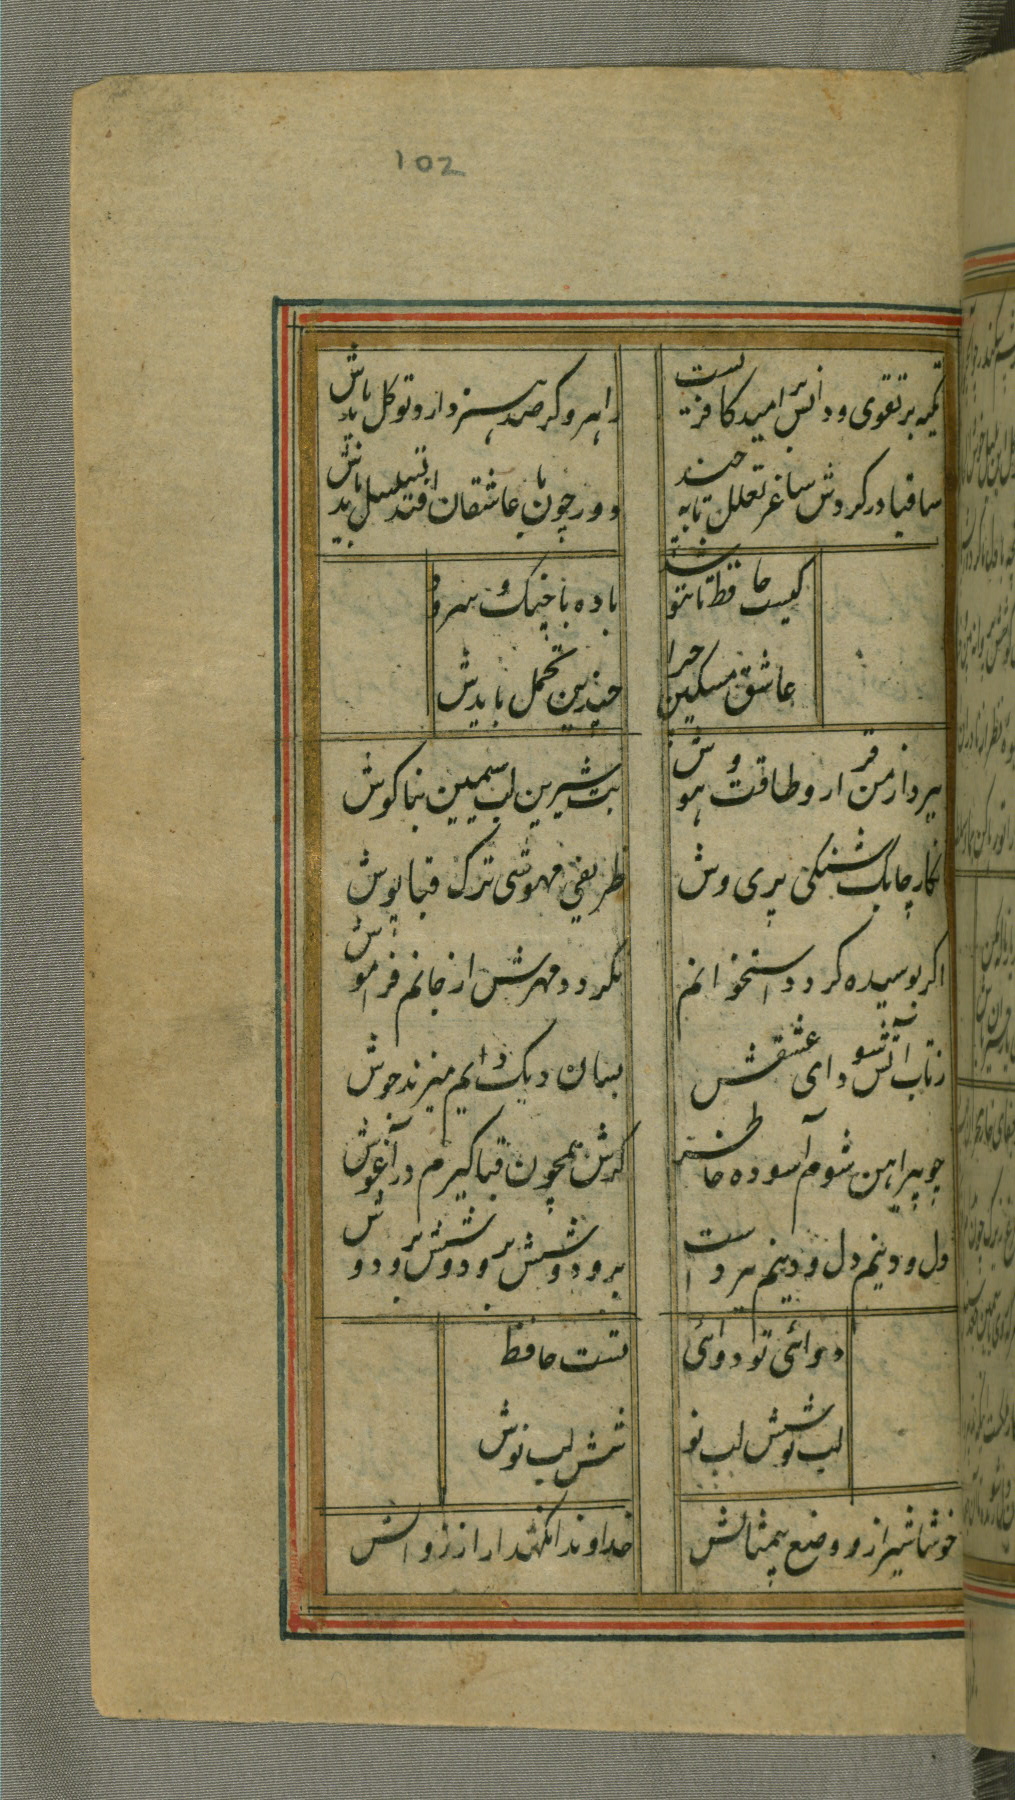 102
تکیه بر تقوی و دانش امید کافریست
راهرو گر صد هنر دارد توکل بایدش
ساقیا در گردش ساغر تعلل تا به چند
دور چون با عاشقان افتد تسلسل بایدش
کیست حافظ تا ننوشد
باده با چنگ و سرود
عاشق مسکین چرا
چندین تحمل بایدش
ببرد از من قرار و طاقت و هوش
بت شیرین لب سیمین بناگوش
نگار چابک شنگی پری وش
ظریفی مهوشی ترک قباپوش
اگر بوسیده گردد استخوانم
نگردد مهرش از جانم فراموش
ز تاب آتش سودای عشقش
بسان دیک دایم میزند جوش
چو پیراهن شوم آسوده خاطر
گرش همچون قبا گیرم در آغوش
دل و دینم دل و دینم ببردست
بر و دوشش بر و دوشش بر و دوش
دوائی تو دوائی
تست حافظ
لب نوشش لب نو
شش لب نوش
خوشا شیراز و وضع بیمثالش
خداوندا نگهدار از زوالش